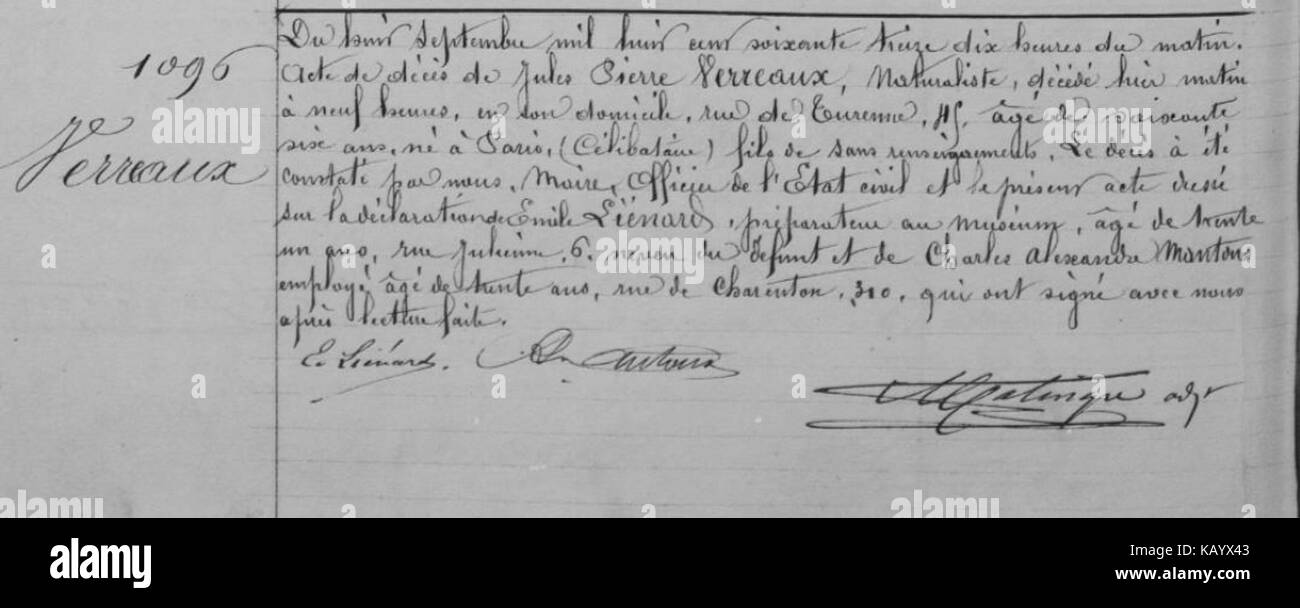 1096
Verreaux
Du huit Septembre mil huit cent soixante treize dix heures du matin.
Acte de décès de Jules Pierre Verreaux, Naturaliste, décédé hier matin
à neuf heures, en son domicile, rue de Turenne, 45, âgé de soixante
six ans, né à Paris, (Célibataire) fils de sans renseignements. Le décès à été
constaté par nous, Maire, Officier de l'Etat civil et le présent acte dressé
sur la déclaration de Emile Liénard, préparateur au muséum, âgé de trente
un ans, rue Julienne, 6, neveu du défunt et de Charles Alexandre
employé, âgé de trente ans, rue de Charenton, 310, qui ont signé avec nous
après lecture faite.
E. Liénard.
adjt
alamy
Image ID: KAYX43
www.alamy.com